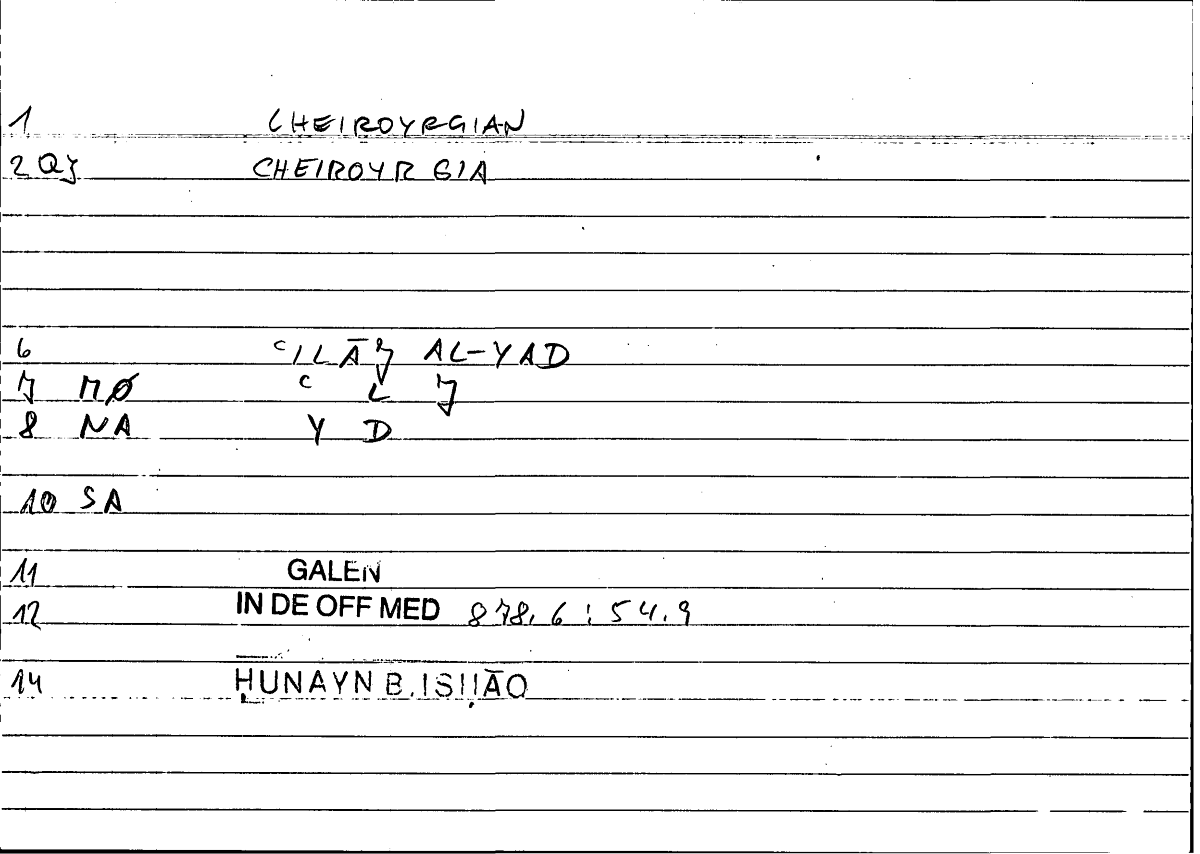 1 CHEIROYRGIAN
2 QJ CHEIROYR GIA
6 ᶜILĀJ AL-YAD
7 MØ ᶜ L J
8 NA Y D
10 SA
11 GALEN
12 IN DE OFF MED 878,6 : 54.9
14 ḤUNAYN B. ISḤĀQ